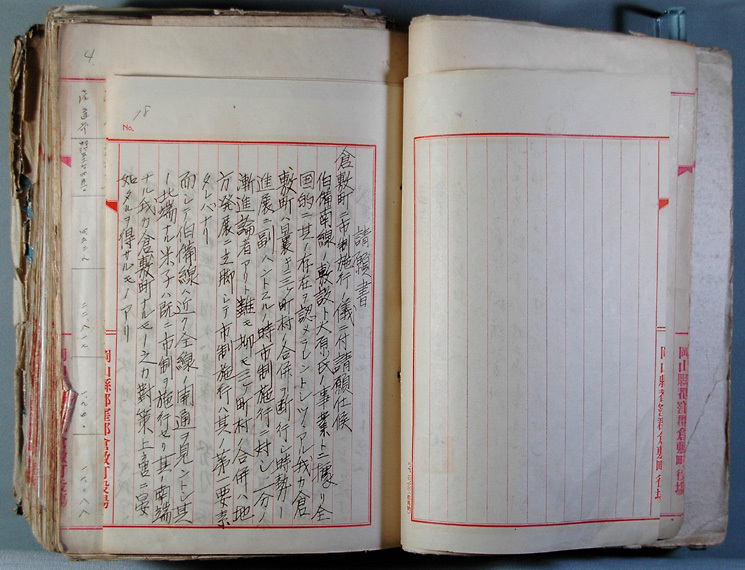 請願書
倉敷町ニ市制施行ノ儀ニ付請願仕候
伯備南線ノ敷設ト大原氏ノ事業トニ據リ全
国的ニ其ノ存在ヲ認メラレントシツヽアル我カ倉
敷町ハ曩キニ三ヶ町村ノ合併ヲ断行シ時勢ノ
進展ニ副ハントス 時市制施行ニ対シ一分ノ
漸進論者アリト雖モ抑モ三ヶ町村ノ合併ハ地
方発展ニ立脚シテ市制施行ハ其ノ第一要素
タレバナリ
而シテ伯備線ハ近ク全線ノ開通ヲ見ントシ其
ノ北端ナル米子ハ既ニ市制ヲ施行セリ其ノ南端
ナル我カ倉敷町ナルモノ之カ対策上 ニ晏
如タルヲ得サルモノアリ
No.
18
4
岡山縣都窪郡倉敷町役場
岡山縣都窪郡倉敷町役場
岡山縣都窪郡倉敷町役場